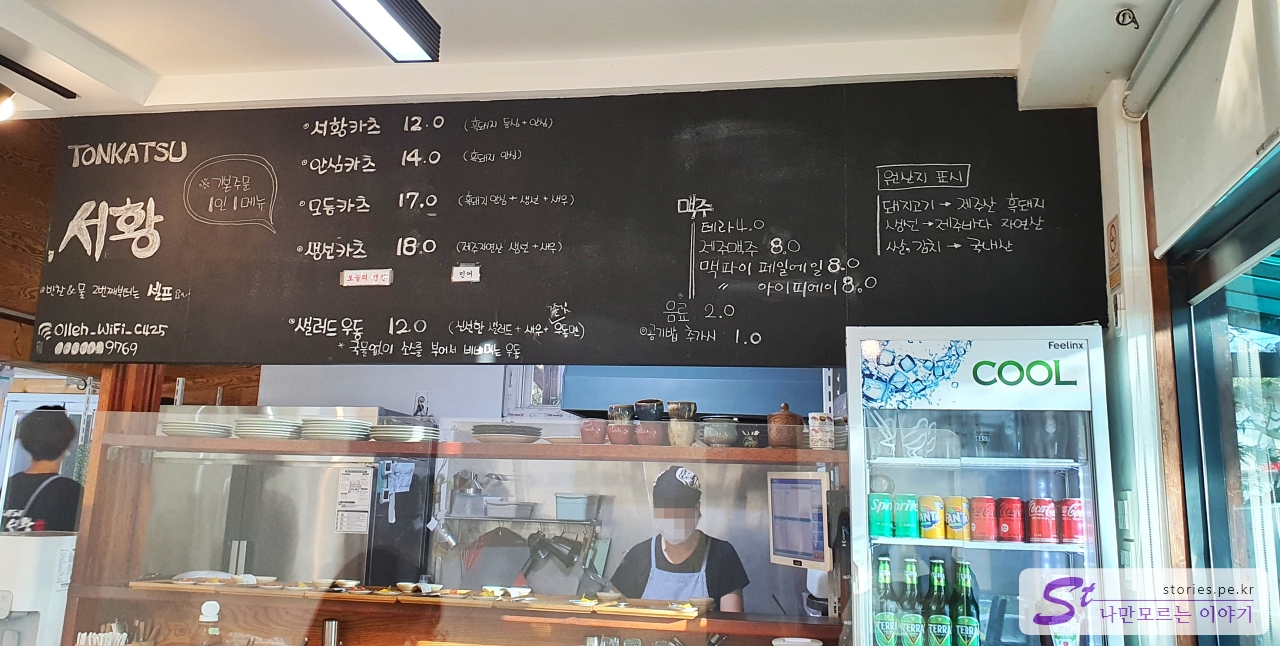 TONKATSU
서황
※ 기본주문
1인 1메뉴
반찬&물 2번째부터는 셀프요~
Olleh_WiFi_C425
9769
서황카츠 12.0 (흑돼지 등심+안심)
안심카츠 14.0 (흑돼지 안심)
모듬카츠 17.0 (흑돼지안심+생선+새우)
생선카츠 18.0 (제주자연산 생선+새우)
오늘의 생선
민어
샐러드우동 12.0 (신선한 샐러드+새우+우동면)
* 국물없이 소스를 부어서 비벼먹는 우동
맥주
테라 4.0
제주맥주 8.0
맥파이 페일에일 8.0
〃 아이피에이 8.0
음료 2.0
공기밥 추가시 1.0
원산지 표시
돼지고기 → 제주산 흑돼지
생선 → 제주바다 자연산
쌀, 김치 → 국내산
Feelinx
COOL
Sprite
FANTA
Coca-Cola
TERRA
St
stories.pe.kr
나만모르는 이야기